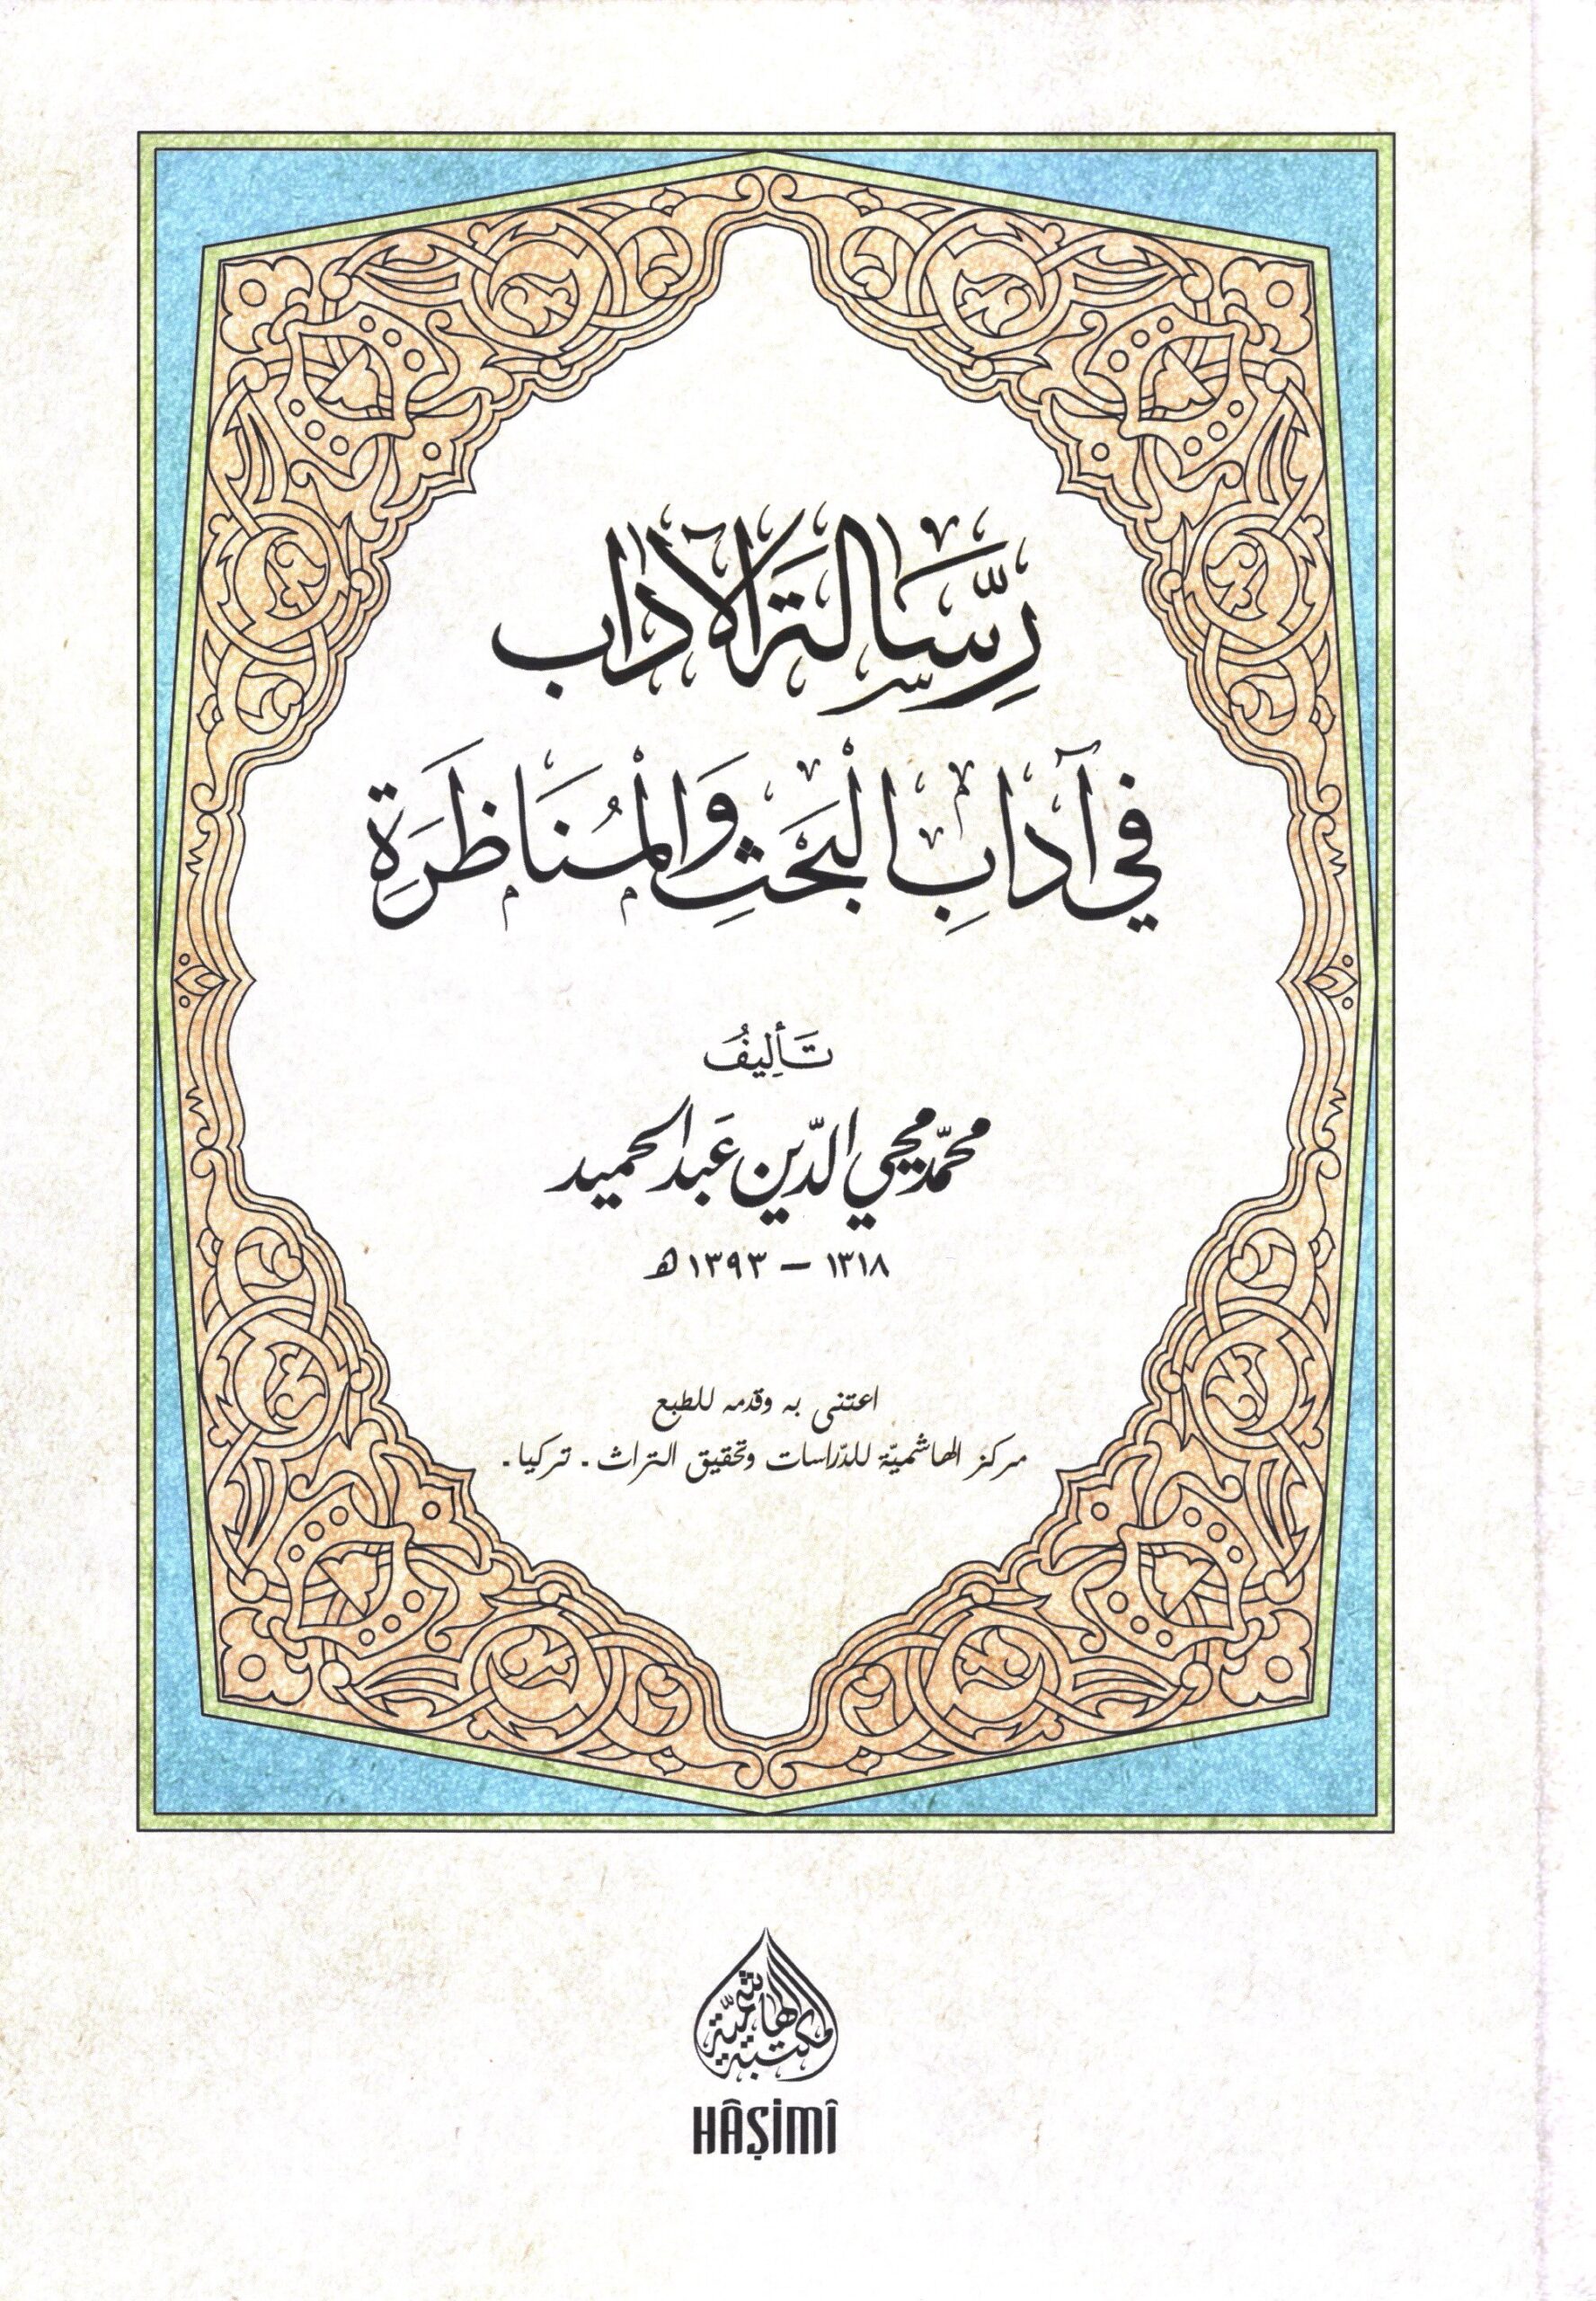 رِسَالَة الآدَاب
فِي آدَابِ الْبَحْثِ وَالْمُنَاظَرَةِ
تَأْلِيفُ
محمّد محيي الدّين عَبد الحميد
١٣١٨ – ١٣٩٣ ه
اعتنى به وقدمه للطبع
مركز الهاشميّة للدّراسات وتحقيق التراث - تركيا -
المكتبة الهاشميّة
HÂŞİMÎ